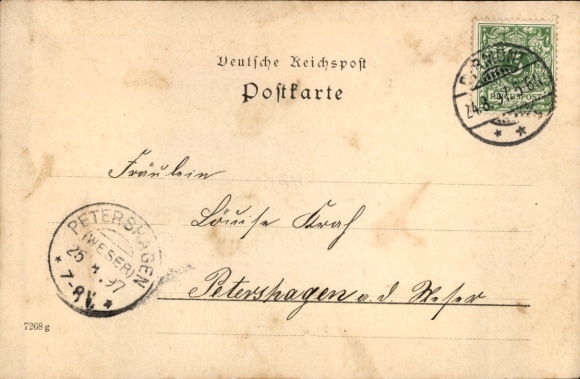 Deutsche Reichspost
Postkarte
REICHSPOST
24.8.97
Fräulein
Louise Krah
Petershagen a. d. Weser
PETERSHAGEN
(WESER)
25 8 97
7-8V.
7268 g